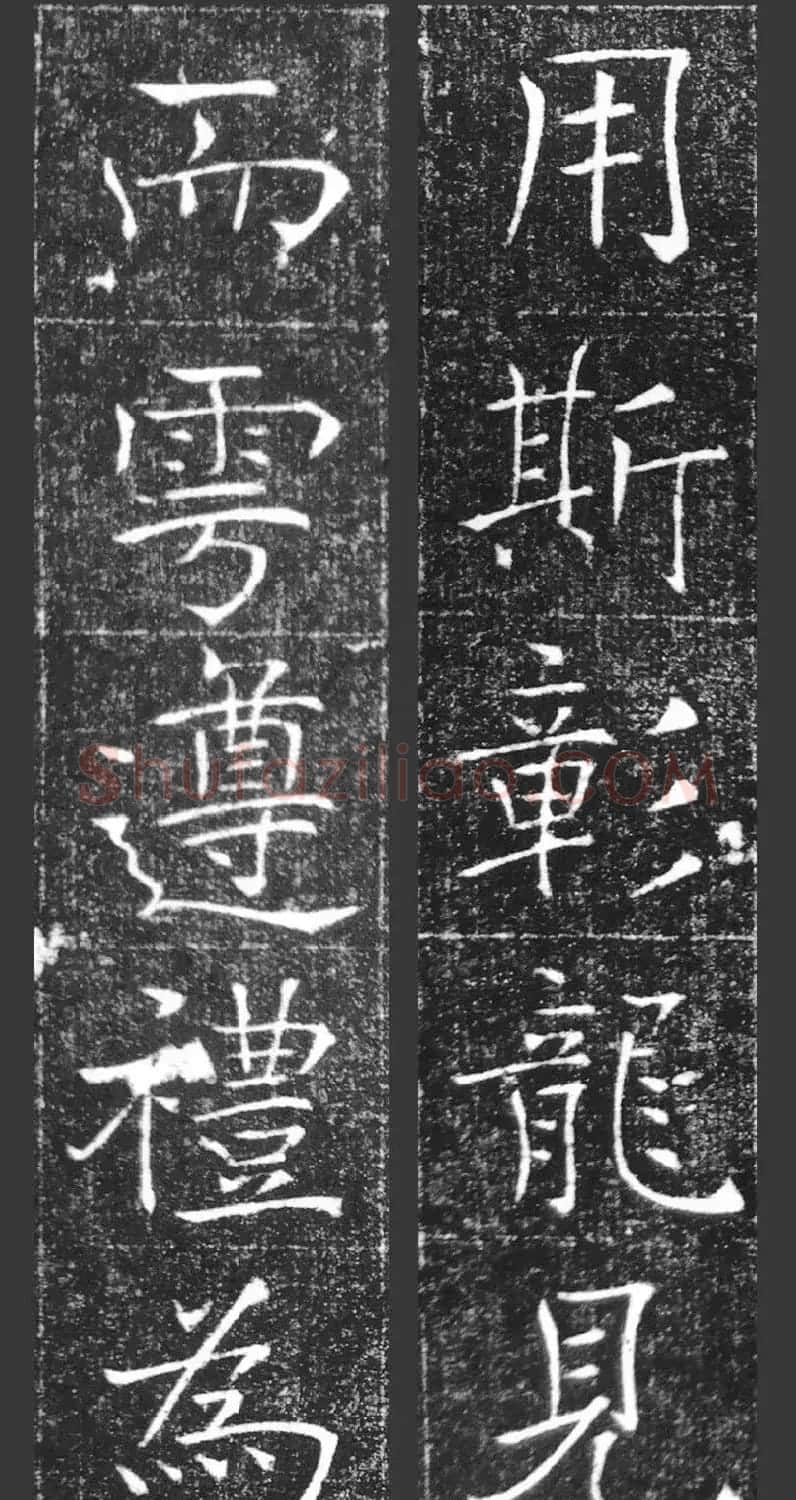 用斯彰龍見
而雩遵禮為
Shufaziliao.COM